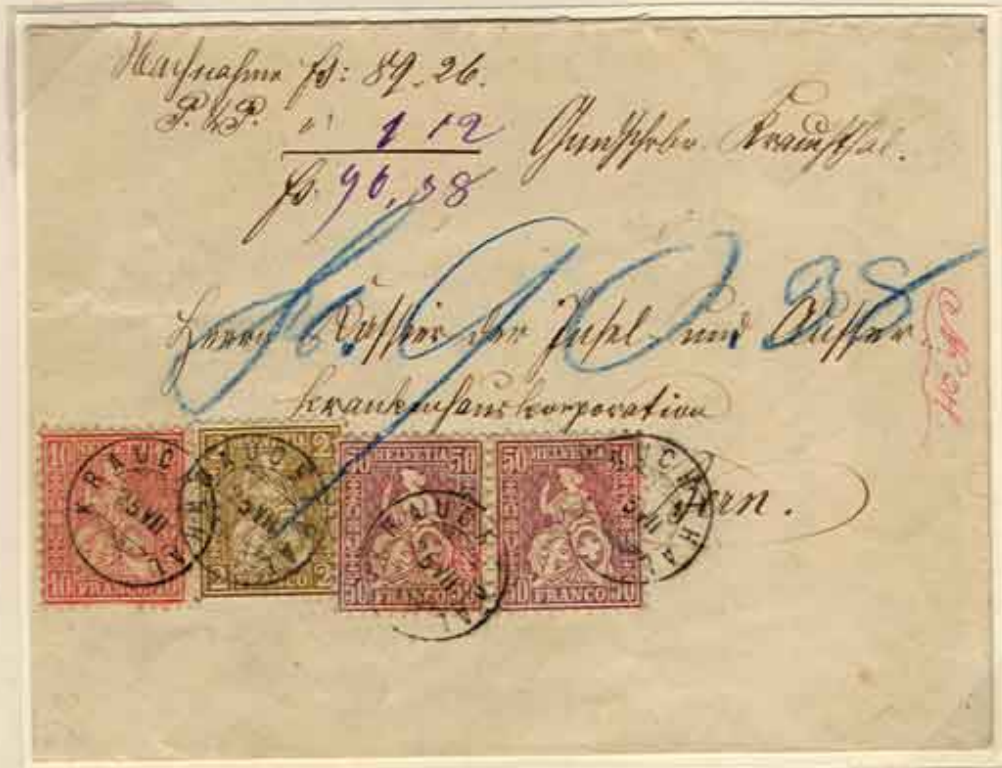 Nachnahme fs: 89.26.
P. & P. " 1 12
fs. 90.38
Gmdschrbr. Krauchthal.
fs. 90 38
Herrn Cassier der Insel- und Ausser-
krankenhauskorporation
Bern.
10 10 FRANCO
2 2 FRANCO 2
50 HELVETIA 50
50 FRANCO 50
50 HELVETIA 50
50 FRANCO 50
KRAUCHTHAL
25 VII
KRAUCHTHAL
KRAUCHTHAL
25 VII
KRAUCHTHAL